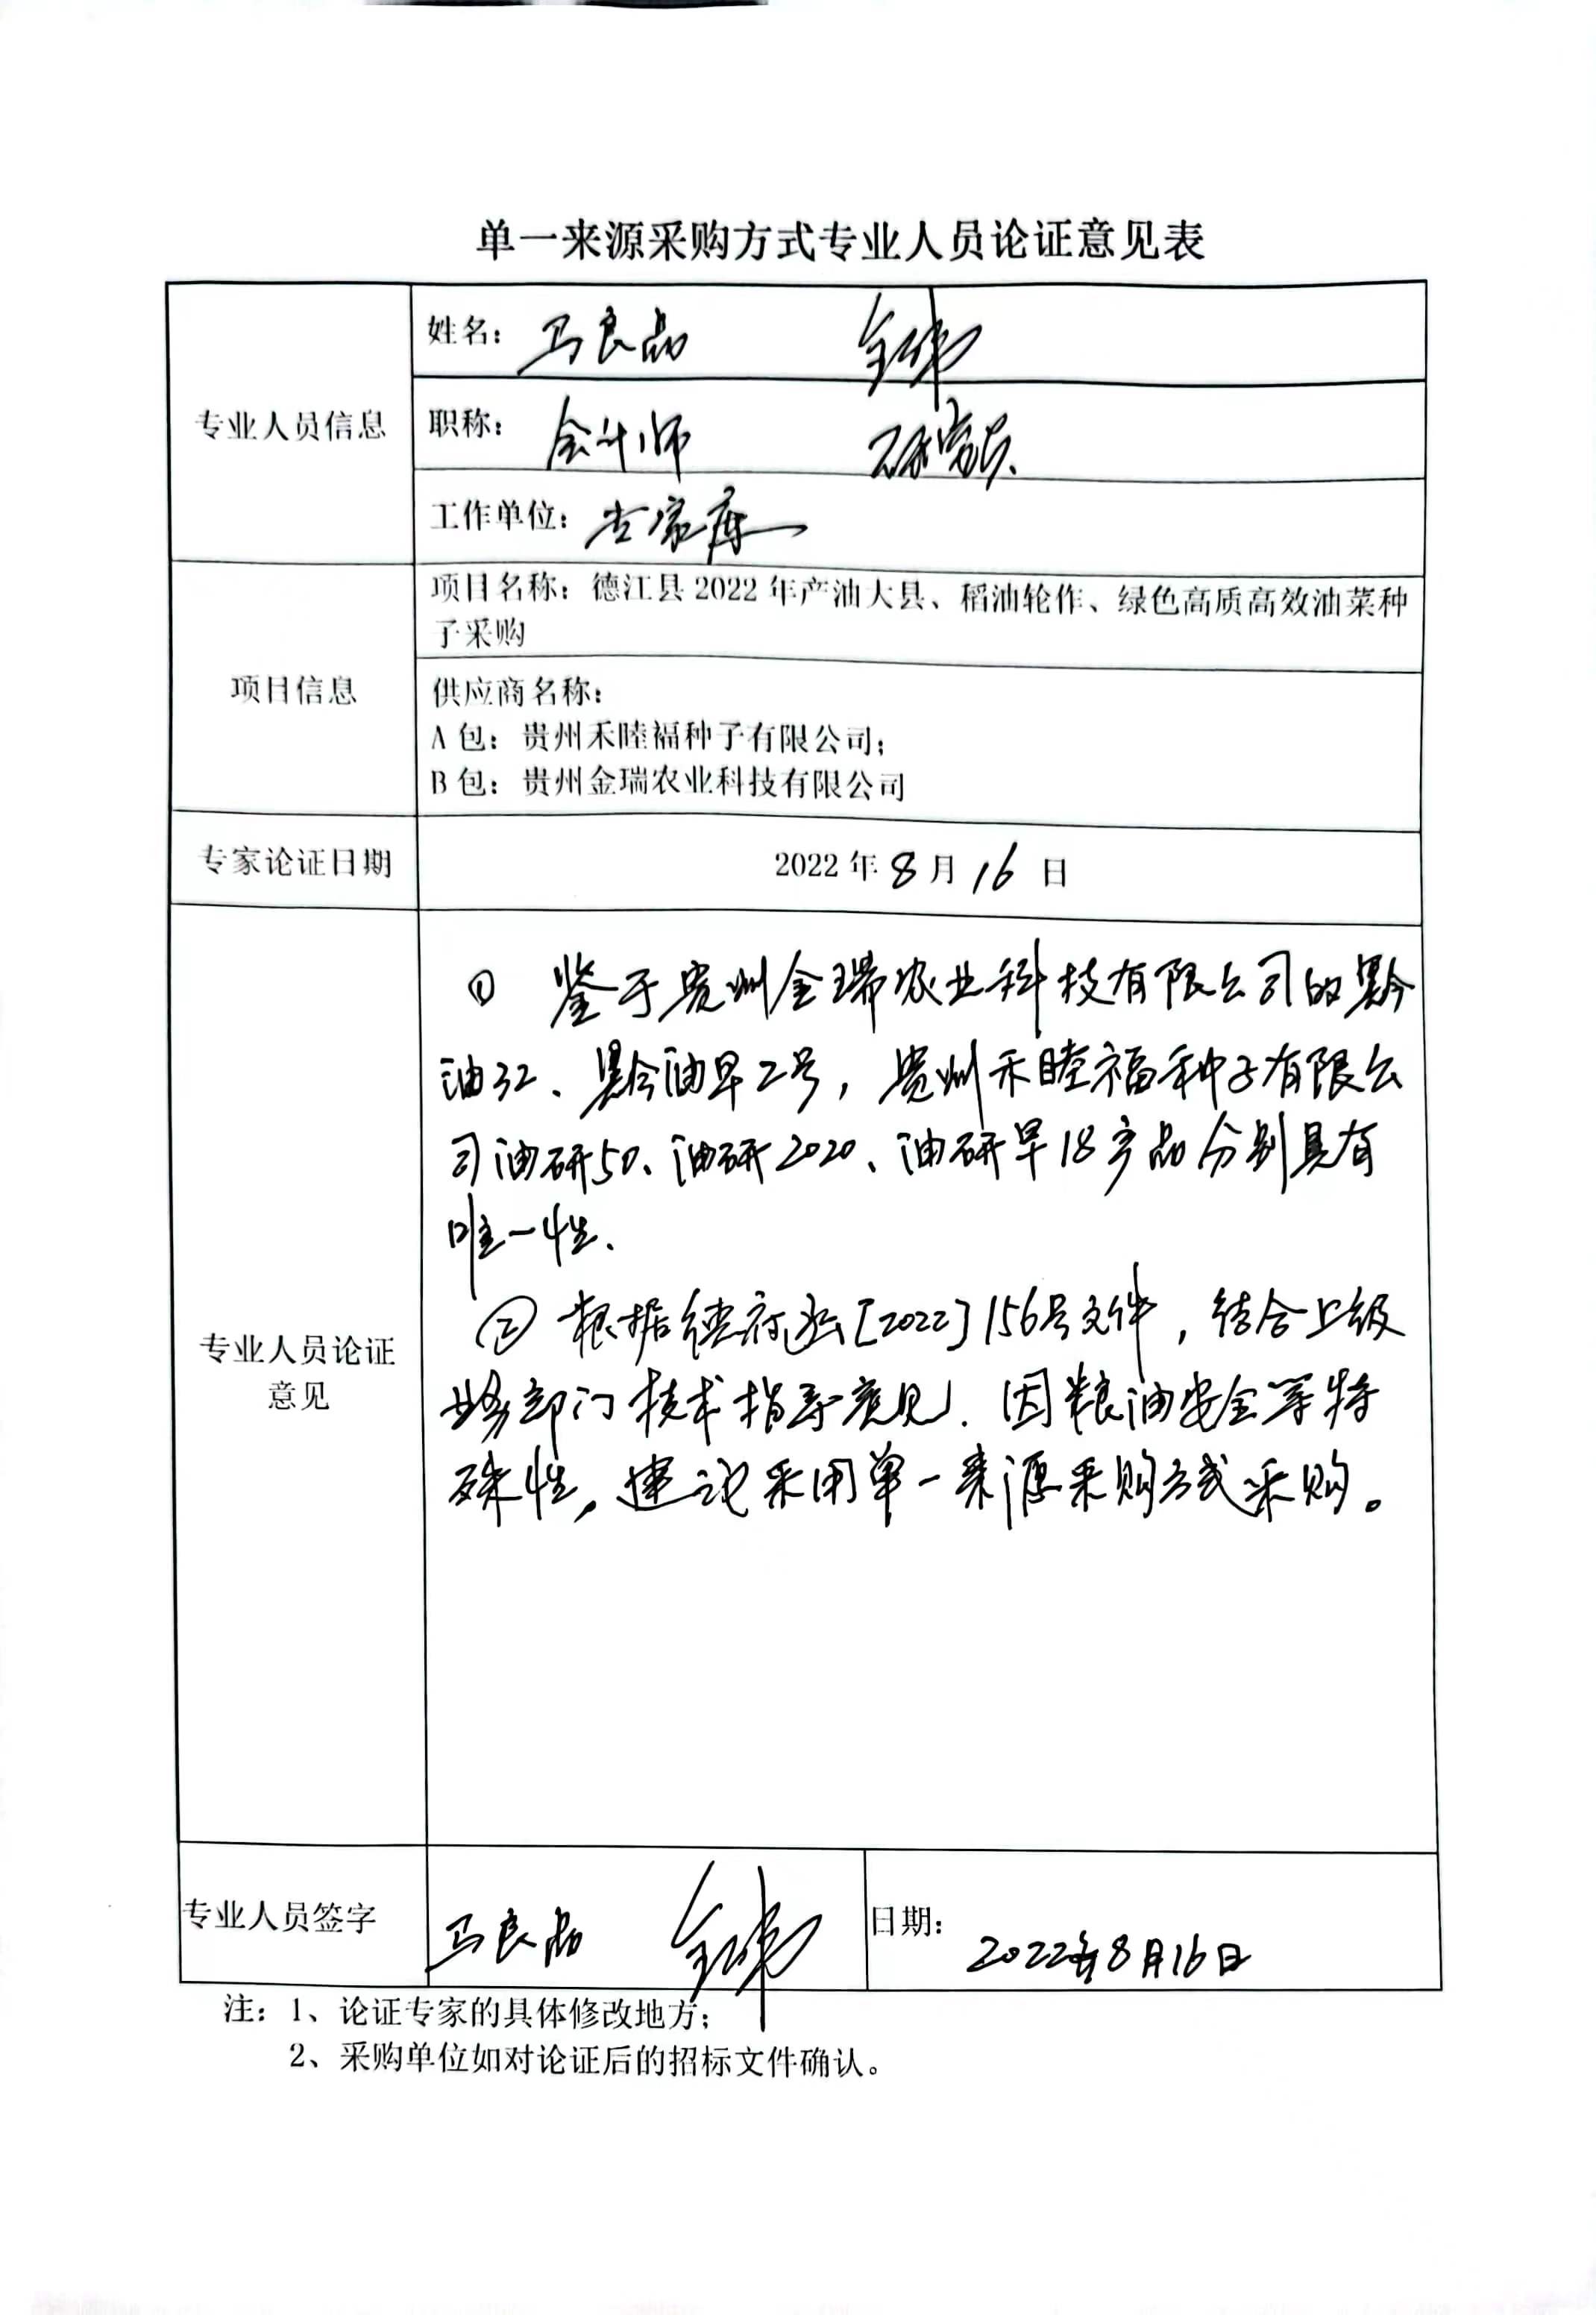 单一来源采购方式专业人员论证意见表
专业人员信息
姓名：马良品
职称：会计师
工作单位：专家库
项目信息
项目名称：德江县2022年产油大县、稻油轮作、绿色高质高效油菜种
子采购
供应商名称：
A包：贵州禾睦福种子有限公司；
B包：贵州金瑞农业科技有限公司
专家论证日期
2022年8月16日
专业人员论证
意见
① 鉴于贵州金瑞农业科技有限公司的黔
油32、黔油早2号，贵州禾睦福种子有限公
司油研50、油研2020、油研早18产品分别具有
唯一性、
② 根据德府函[2022]156号文件，结合上级
业务部门技术指导意见，因粮油安全等特
殊性，建议采用单一来源采购方式采购。
专业人员签字
马良品
日期：
2022年8月16日
注：1、论证专家的具体修改地方；
2、采购单位如对论证后的招标文件确认。